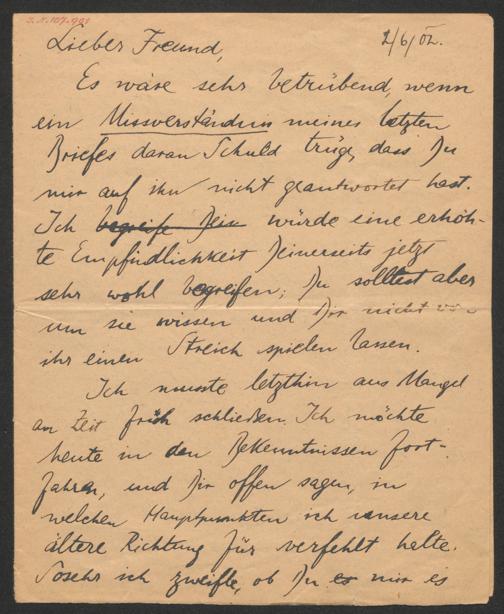 Lieber Freund, 2/6/02.
Es wäre sehr betrübend, wenn
ein Missverständnis meines letzten
Briefes daran Schuld trüge, dass Du
mir auf ihn nicht geantwortet hast.
Ich begreife Dein würde eine erhöh-
te Empfindlichkeit Deinerseits jetzt
sehr wohl begreifen; Du solltest aber
um sie wissen und Dir nicht von
ihr einen Streich spielen lassen.
Ich musste letzthin aus Mangel
an Zeit früh schließen. Ich möchte
heute in den Bekenntnissen fort-
fahren, und Dir offen sagen, in
welchen Hauptpunkten ich unsere
ältere Richtung für verfehlt halte.
Sosehr ich zweifle, ob Du es mir es